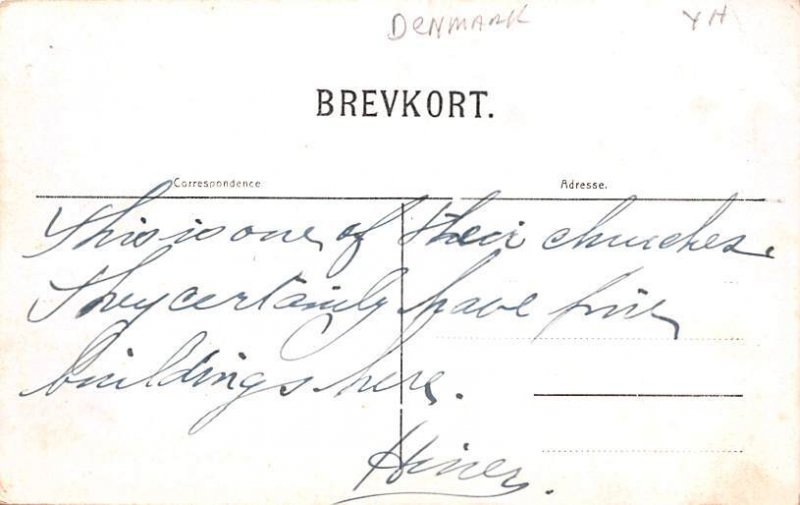 DENMARK YH
BREVKORT.
Correspondence Adresse.
This is one of their churches.
They certainly have fine
buildings here.